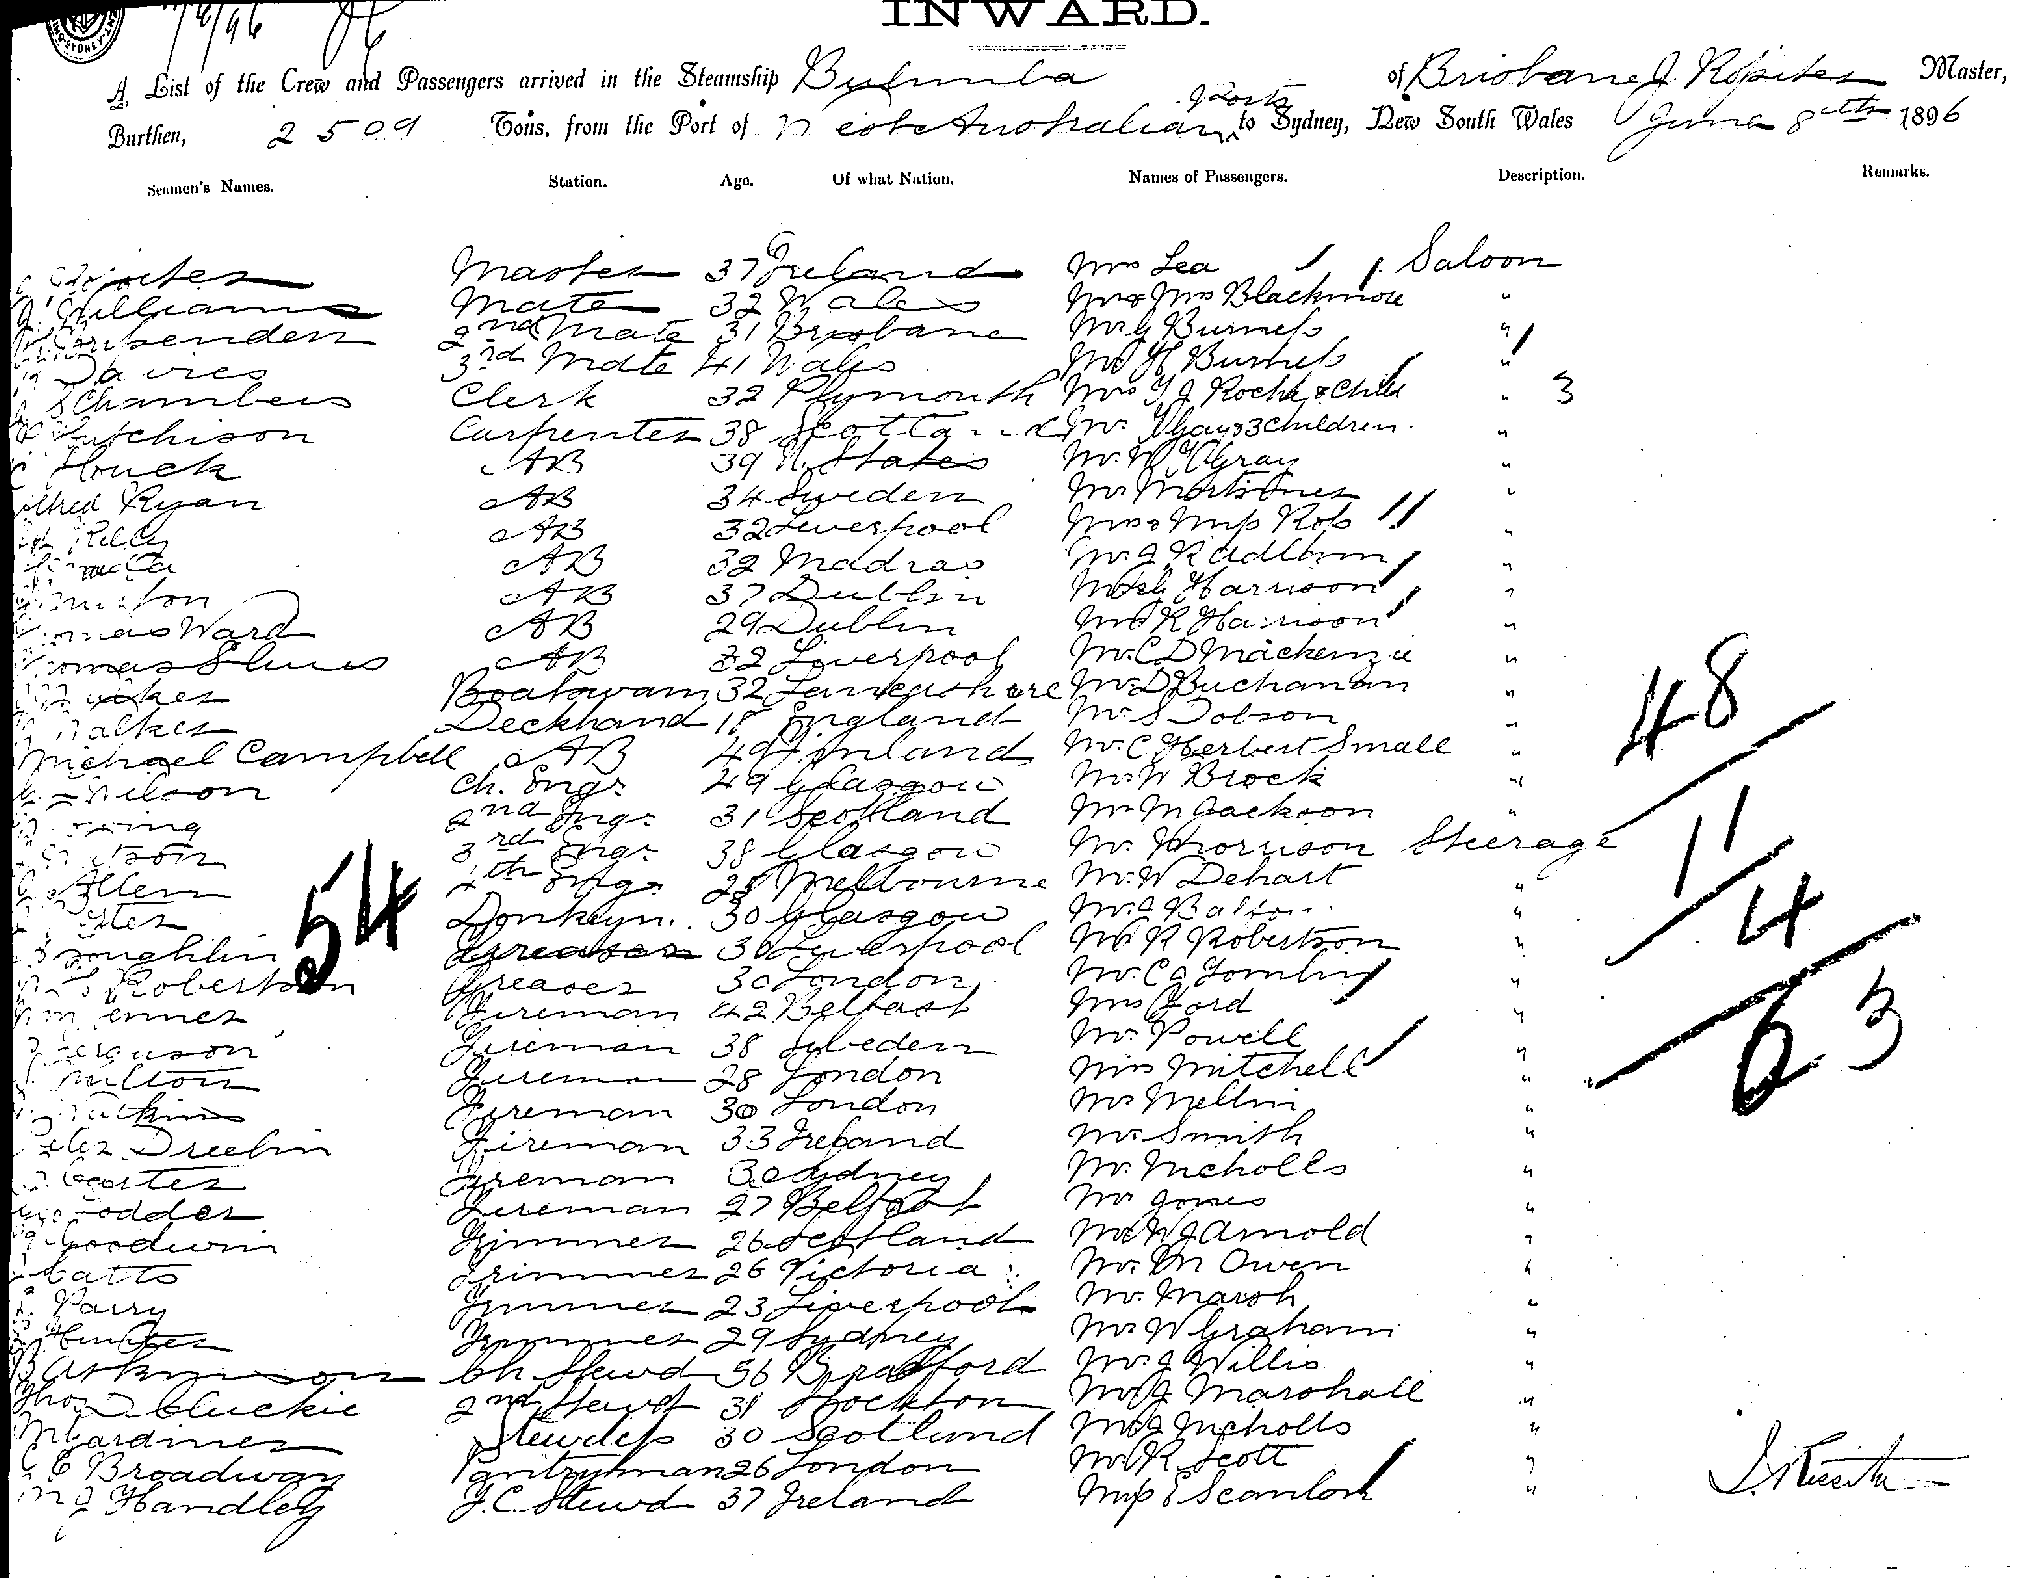 7/6/96
INWARD.
A List of the Crew and Passengers arrived in the Steamship Bulimba of Brisbane J. Master,
Burthen, 2509 Tons, from the Port of West Australian Ports to Sydney, New South Wales June 8th 1896
Seamen's Names. Station. Age. Of what Nation. Names of Passengers. Description. Remarks.
Master 37 Ireland Mrs Lea 1. Saloon
Williams Mate 32 Wales Mr & Mrs Blackmore "
2nd Mate 31 Brisbane Mr G Burness "
Davies 3rd Mate 41 Wales H Burness "
Chambers Clerk 32 Plymouth Mrs T J Roche & Child " 3
Hutchison Carpenter 38 Scotland Gay & 3 Children "
Houck AB 39 U. States Mr Gray "
Alfred Ryan AB 34 Sweden Mr "
Reilly AB 32 Liverpool Mrs & Miss Ross "
AB 32 Madras Mr J Radburn "
AB 37 Dublin Harrison "
Thomas Ward AB 29 Dublin R Harrison "
Thomas AB 32 Liverpool Mr C D Mackenzie "
Boatswain 32 Lancashire Mr D Buchanan "
Walker Deckhand 18 England Mr S Dobson "
Michael Campbell AB 49 Finland Mr C Herbert Small " 48
Wilson Ch. Engr 49 Glasgow Mr W Brock "
2nd Engr 31 Scotland Mr M Jackson "
3rd Engr 38 Glasgow Mr Morrison Steerage 11
Allem 4th Engr 28 Melbourne Mr W Dehart "
54 Donkeyn. 30 Glasgow Mr " 4
Coughlin Greaser 30 Liverpool R Robertson "
Robertson Greaser 30 London Mr C J Tomlin "
Fireman 42 Belfast Mrs Ford "
Ferguson Fireman 38 Sweden Mr Powell " 63
Milton Fireman 28 London Miss Mitchell "
Fireman 30 London Mr Mellin "
Dreelin Fireman 33 Ireland Mr Smith "
Carter Fireman 30 Sydney Mr Nicholls "
Fireman 27 Belfast Mr Jones "
Goodwin Trimmer 26 Scotland W J Arnold "
Catts Trimmer 26 Victoria Mr M Owen "
Parry Trimmer 23 Liverpool Mr Marsh "
Hunter Trimmer 29 Sydney Mr W Graham "
B Atkinson Ch Stewd 56 Bradford Mr J Willis "
Thos Cluckie 2nd Stewd 31 Stockton Mr J Marshall "
M Gardiner Stewdess 30 Scotland Mr J Nicholls "
C Broadway Pantryman 26 London R Scott "
M J Handley F.C. Stewd 37 Ireland Miss E Scanlon "